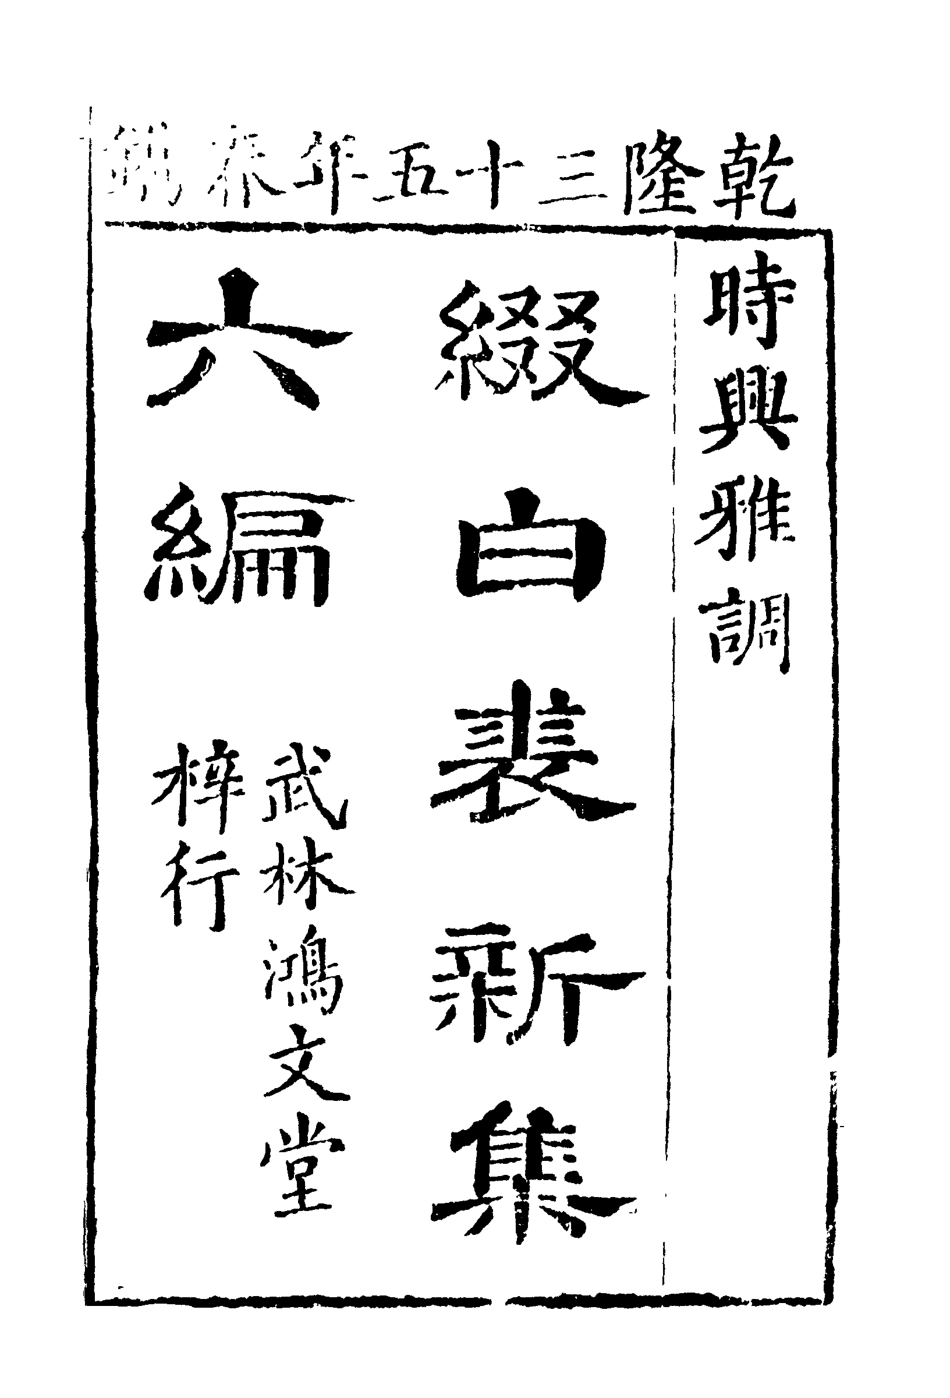 乾隆三十五年春
時興雅調
綴白裘新集
六編
武林鴻文堂
梓行